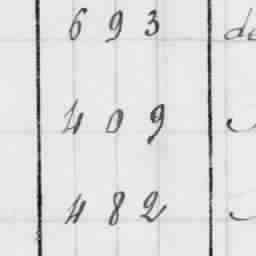 693 de
409
482